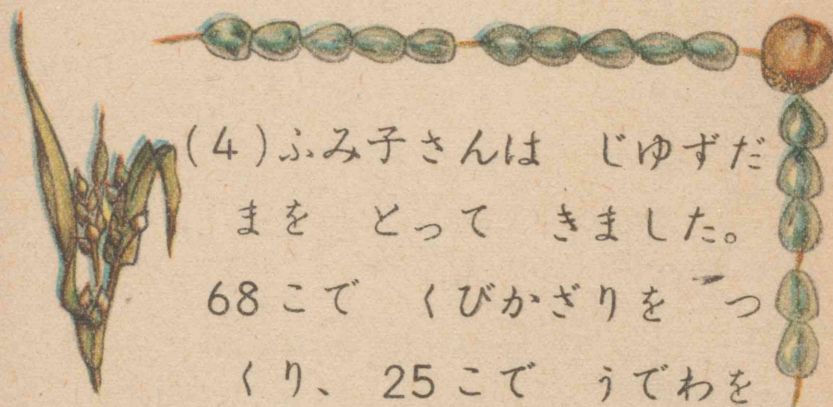 (4)ふみ子さんは じゆずだ
まを とって きました。
68こで くびかざりを つ
くり、 25こで うでわを